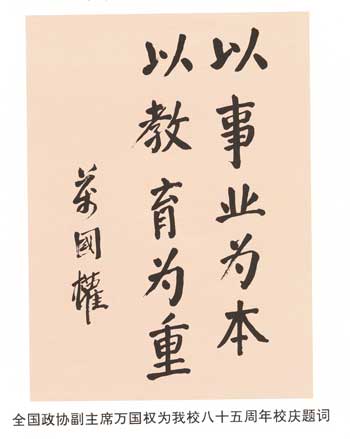 以事业为本
以教育为重
萬國權
全国政协副主席万国权为我校八十五周年校庆题词